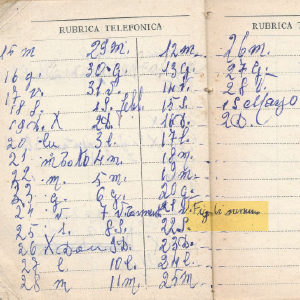 RUBRICA TELEFONICA
RUBRICA T
15 m 29 m. 12 m. 26 m.
16 g. 30 g. 13 g. 27 g.
17 v. 31 v. 14 v. 28 v.
18 S. 1 S. febb. 15 S. 1 S Mayo
19 D. X 2 D. 16 D. 2 D.
20 lu 3 l. 17 l.
21 4 m. 18 m.
22 m 5 m. 19 m.
23 g 6 g. 20 g.
24 v 7 v. 21 v.
25 s. 8 S. 22 S.
26 X 9 D. 23 D.
27 l 10 l. 24 l.
28 m 11 m. 25 m